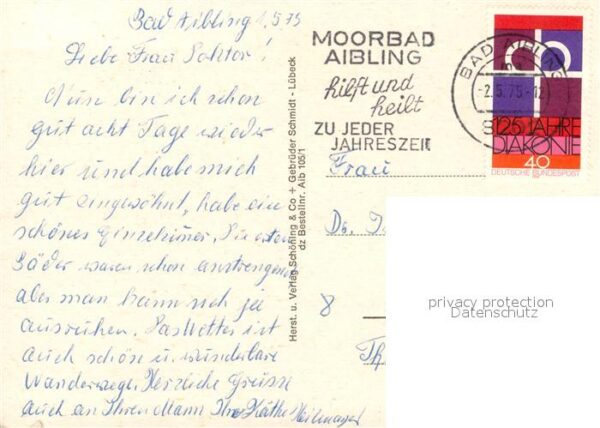 Bad Aibling 1.5.75
Liebe Frau Doktor!
Nun bin ich schon
gut acht Tage wieder
hier und habe mich
gut eingewöhnt, habe ein
schönes Einzelzimmer. Die ersten
Bäder waren schon anstrengend
aber man kann sich ja
ausruhen. Das Wetter ist
auch schön u. wunderbare
Wanderwege. Herzliche Grüsse
auch an Ihren Mann Ihre Käthe
Herst. u. Verlag Schöning & Co + Gebrüder Schmidt - Lübeck
dz Bestellnr. Aib 105/1
MOORBAD
AIBLING
hilft und
heilt
ZU JEDER
JAHRESZEIT
BAD AIBLING
-2.5.75-12
125 JAHRE
DIAKONIE
40
DEUTSCHE BUNDESPOST
Frau
Dr.
8
Th
privacy protection
Datenschutz